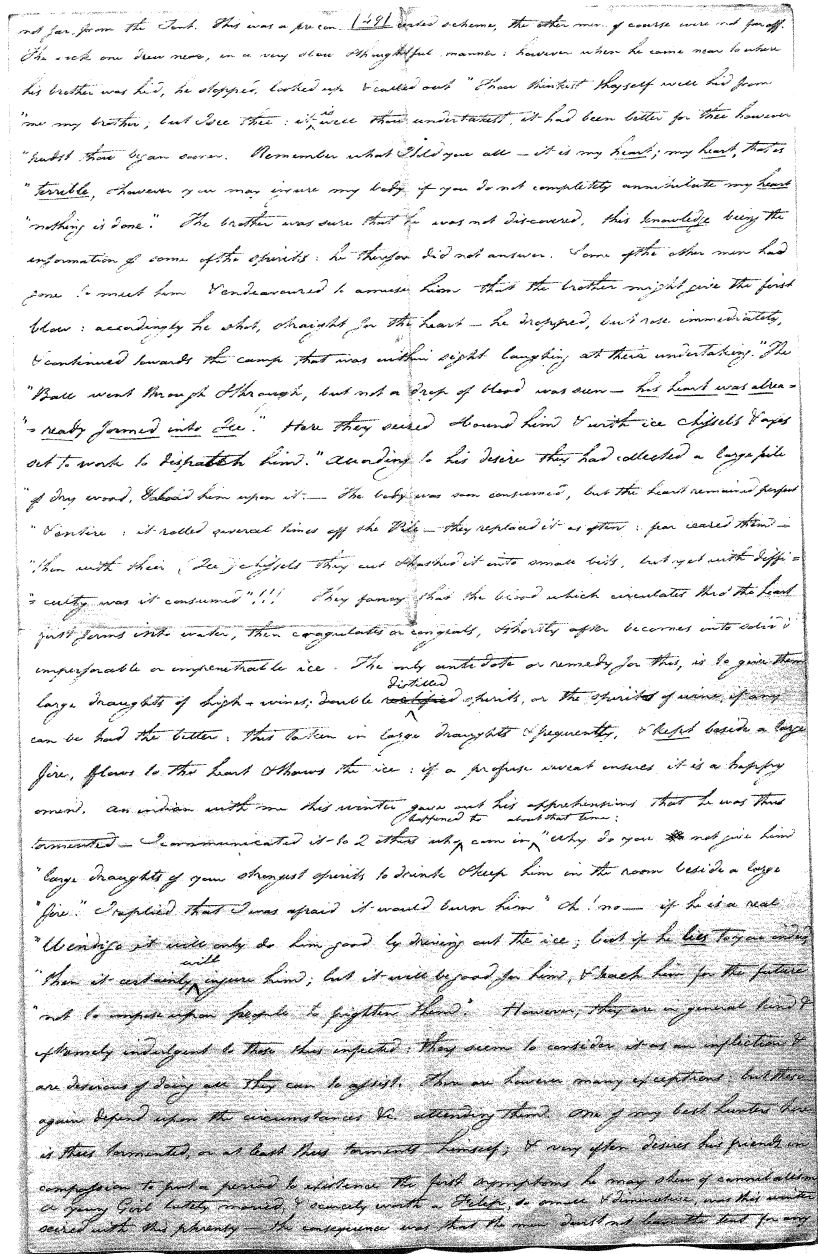 not far from the Tent. This was a precon (49) certed scheme, the other men of course were not far off.
The sick one drew near, in a very slow & thoughtful manner: however when he came near to where
his brother was hid, he stopped, looked up & called out "Thou thinkest thyself well hid from
"me my brother; but I see thee: it is well thou undertakest, it had been better for thee however
"hadst thou began sooner. Remember what I told you all — it is my heart; my heart, that is
"terrible, & however you may injure my body if you do not completely annihilate my heart
"nothing is done." The brother was sure that he was not discovered, this knowledge being the
information of some of the spirits: he therefore did not answer. Some of the other men had
gone to meet him & endeavoured to amuse him that the brother might give the first
blow: accordingly he shot, straight for the heart — he dropped, but rose immediately,
& continued towards the camp that was within sight laughing at their undertaking. "The
"Ball went through & through, but not a drop of blood was seen — his heart was alrea=
"=ready formed into Ice." Here they seized & bound him & with ice chissels & axes
set to work to dispatch him." According to his desire they had collected a large pile
"of dry wood, & laid him upon it: — The body was soon consumed, but the heart remained perfect
"& entire: it rolled several times off the Pile — they replaced it as often: fear ceared them —
"then with their (Ice) chissels they cut & hashed it into small bits, but yet with diffi=
"=culty was it consumed"!!! They fancy that the blood which circulates thro' the heart
first forms into water, then coagulates or congeals, & shortly after becomes into solid
imperforable or impenetrable ice. The only antidote or remedy for this, is to give them
large draughts of high-wines; double distilled spirits, or the spirits of wine, if any
can be had the better: this taken in large draughts & frequently, & kept beside a large
fire, flows to the heart & thaws the ice: if a profuse sweat ensues it is a happy
omen. An indian with me this winter gave out his apprehensions that he was thus
tormented — I communicated it to 2 others who happened to come in about that time: "Why do you not give him
"large draughts of your strongest spirits to drink & keep him in the room beside a large
"fire." I replied that I was afraid it would burn him "Oh! no — if he is a real
"Windigo it will only do him good by driving out the ice; but if he lies to you indeed
"then it certainly will injure him; but it will be good for him, & teach him for the future
"not to impose upon people, to frighten them." However, they are in general kind &
extremely indulgent to those thus infected: they seem to consider it as an infliction &
are desirous of doing all they can to assist. There are however many exceptions: but these
again depend upon the circumstances &c attending them. One of my best hunters here
is thus tormented, or at least thus torments himself; & very often desires his friends in
compassion to put a period to existence the first symptoms he may shew of cannibalism
A young Girl lately married, & scarcely worth a Filip, so small & diminutive, was this winter
seized with this phrensy — the consequence was that the men durst not leave the tent for any